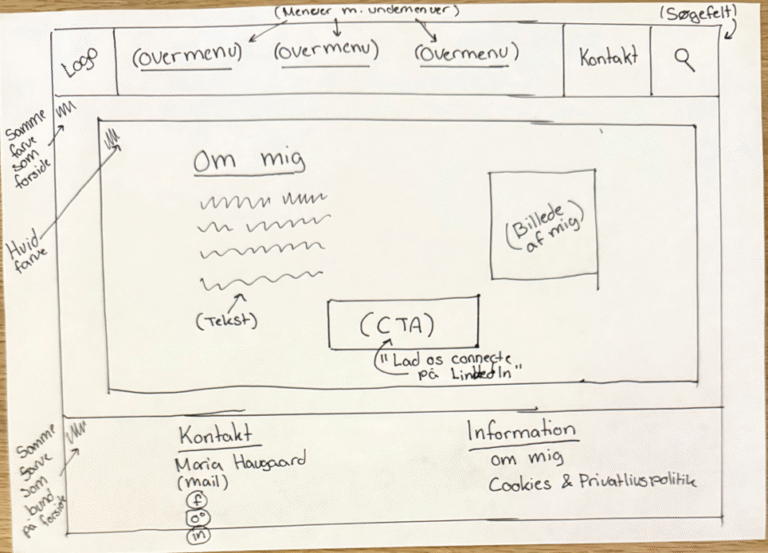 (Menuer m. undermenuer)
(Søgefelt)
Logo
(Overmenu)
(Overmenu)
(Overmenu)
Kontakt
Samme
farve
som
forside
Hvid
farve
Om mig
(Billede
af mig)
(Tekst)
(CTA)
"Lad os connecte
på LinkedIn"
Samme
farve
som
bund
på forside
Kontakt
Maria Haugaard
(mail)
f
in
Information
om mig
Cookies & Privatlivspolitik